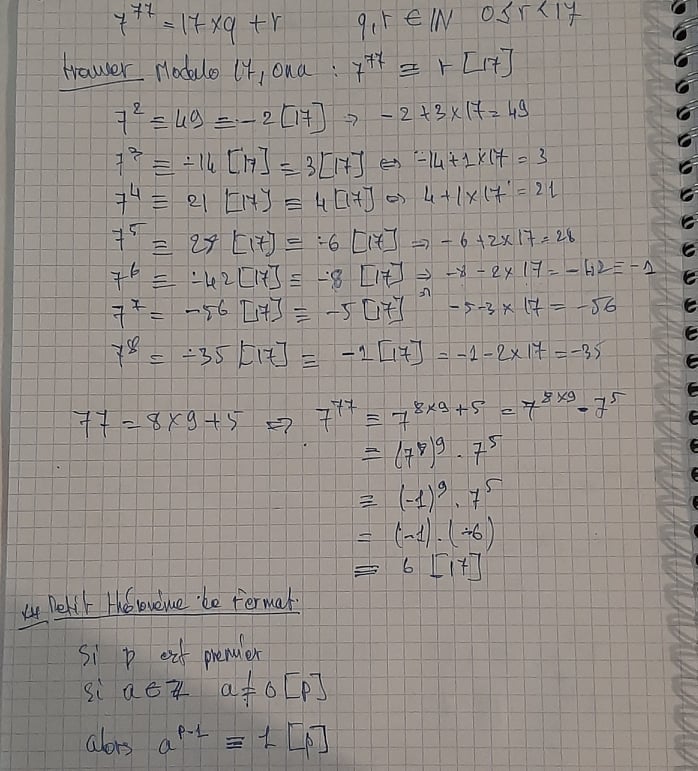 7^77 = 17 × q + r q, r ∈ IN 0 ≤ r < 17
Modulo 17, on a : 7^77 ≡ r [17]
7^2 ≡ 49 ≡ -2 [17] ⇒ -2 + 3 × 17 = 49
7^3 ≡ -14 [17] ≡ 3 [17] ⇔ -14 + 1 × 17 = 3
7^4 ≡ 21 [17] ≡ 4 [17] ⇔ 4 + 1 × 17 = 21
7^5 ≡ 28 [17] ≡ -6 [17] ⇒ -6 + 2 × 17 = 28
7^6 ≡ -42 [17] ≡ -8 [17] ⇒ -8 - 2 × 17 = -42 = -1
7^7 = -56 [17] ≡ -5 [17] -5 - 3 × 17 = -56
7^8 = -35 [17] ≡ -1 [17] = -1 - 2 × 17 = -35
77 = 8 × 9 + 5 ⇒ 7^77 ≡ 7^8×9+5 = 7^8×9 · 7^5
≡ (7^8)^9 · 7^5
≡ (-1)^9 · 7^5
= (-1) · (-6)
≡ 6 [17]
Petit Théorème de Fermat
Si p est premier
si a ∈ Z a ≢ 0 [p]
alors a^p-1 ≡ 1 [p]